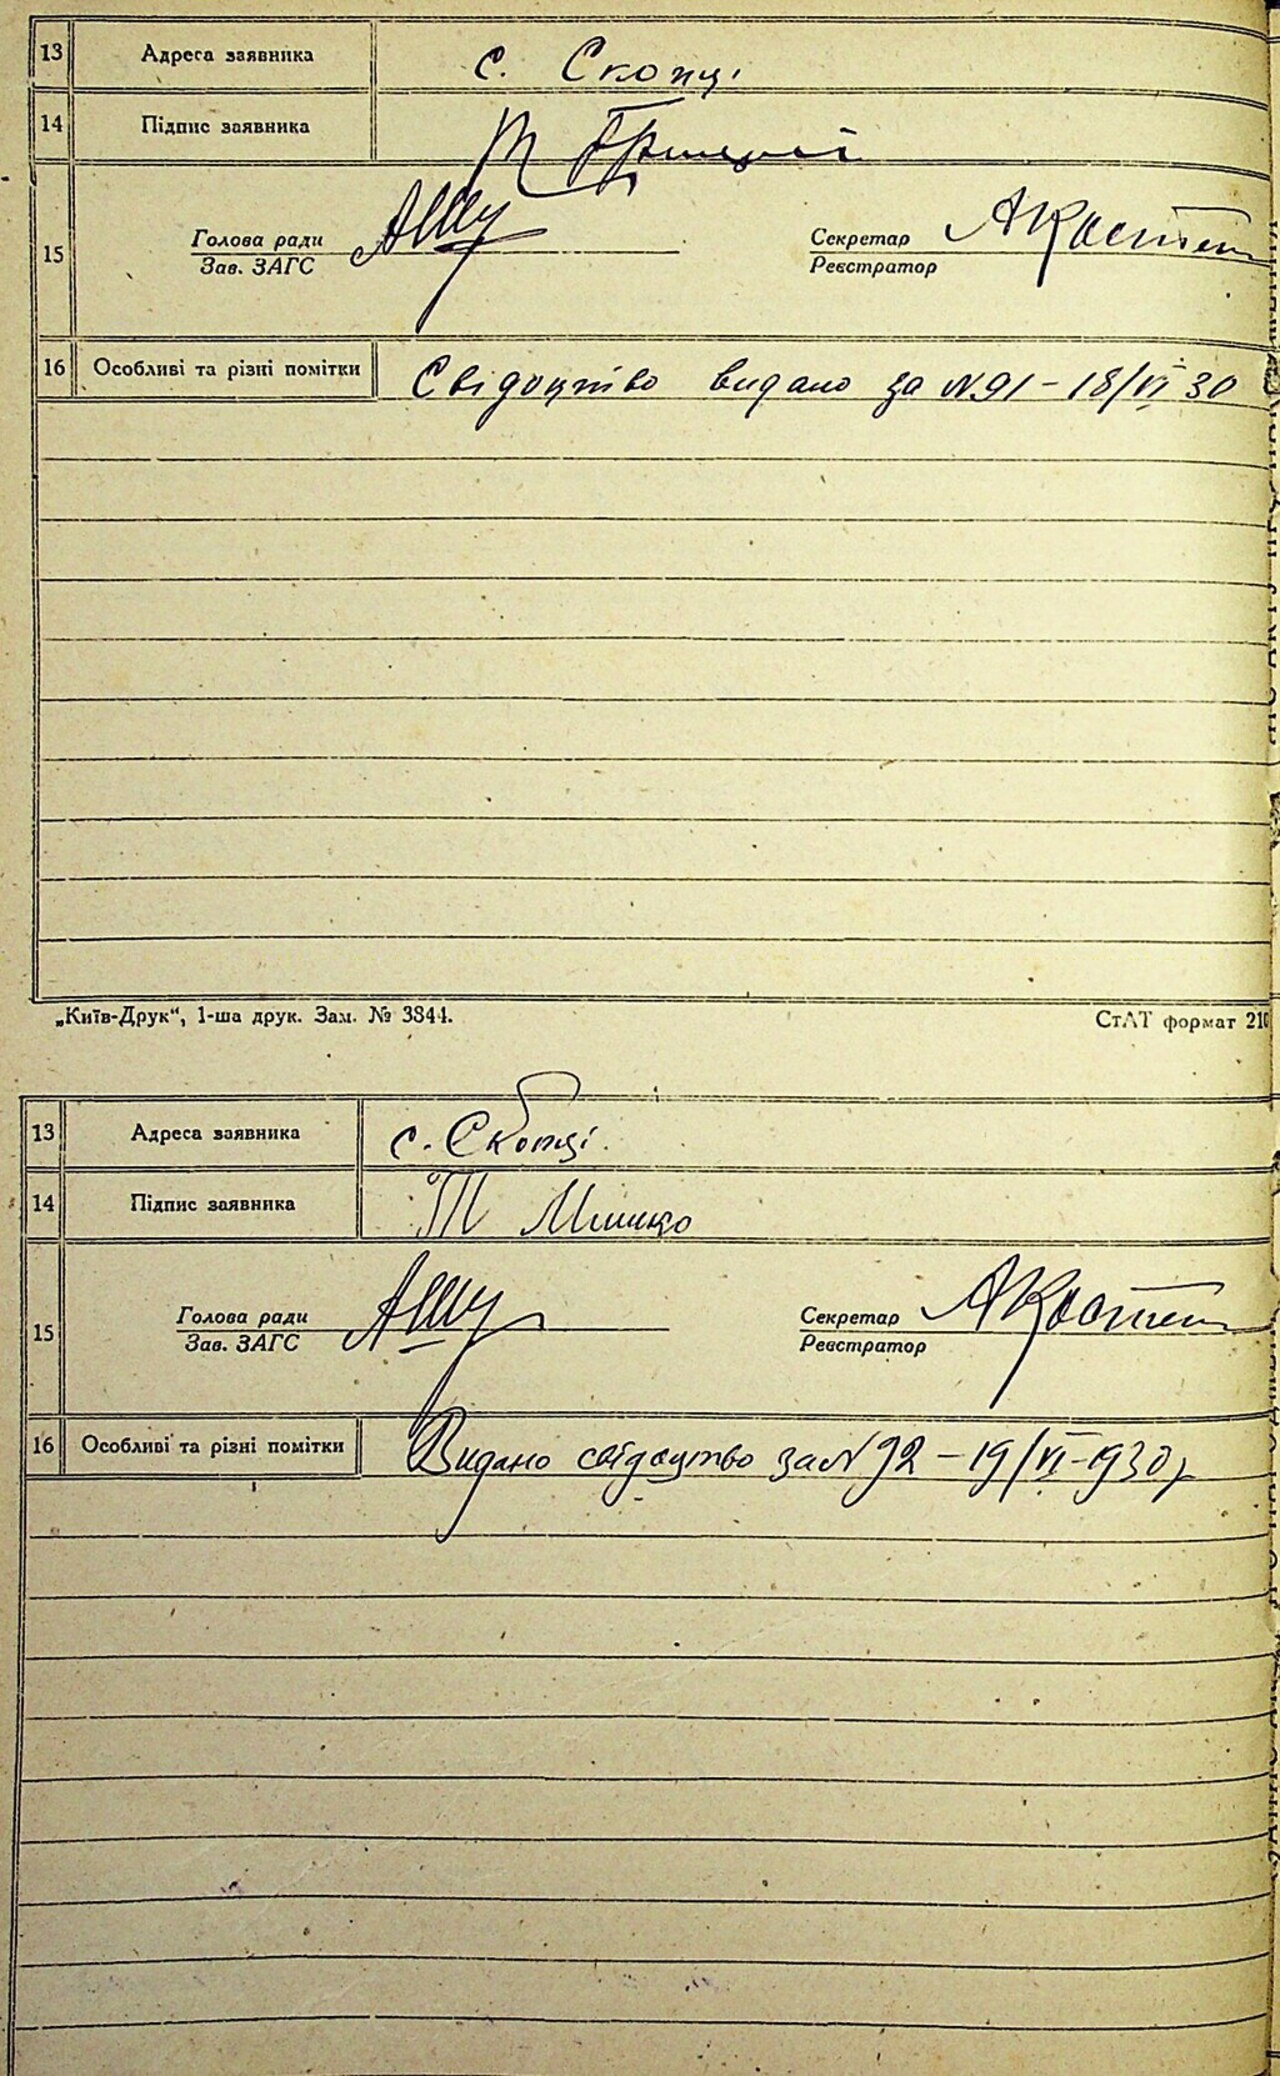 13 Адреса заявника с. Скопці
14 Підпис заявника
15 Голова ради Секретар
Зав. ЗАГС Реєстратор
16 Особливі та різні помітки Свідоцтво видано за N 91 - 18/VI 30
„Київ-Друк“, 1-ша друк. Зам. № 3844. СтАТ формат 210
13 Адреса заявника с. Скопці
14 Підпис заявника Т Мишко
15 Голова ради Секретар
Зав. ЗАГС Реєстратор
16 Особливі та різні помітки Видано свідоцтво за N 92 - 19/VI-1930р